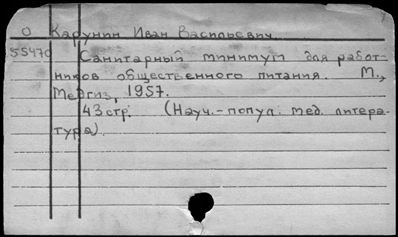 О Карунин Иван Васильевич.
55470 Санитарный минимум для работ-
ников общественного питания. М.,
Медгиз, 1957.
43 стр. (Науч.-попул. мед. литера-
тура).